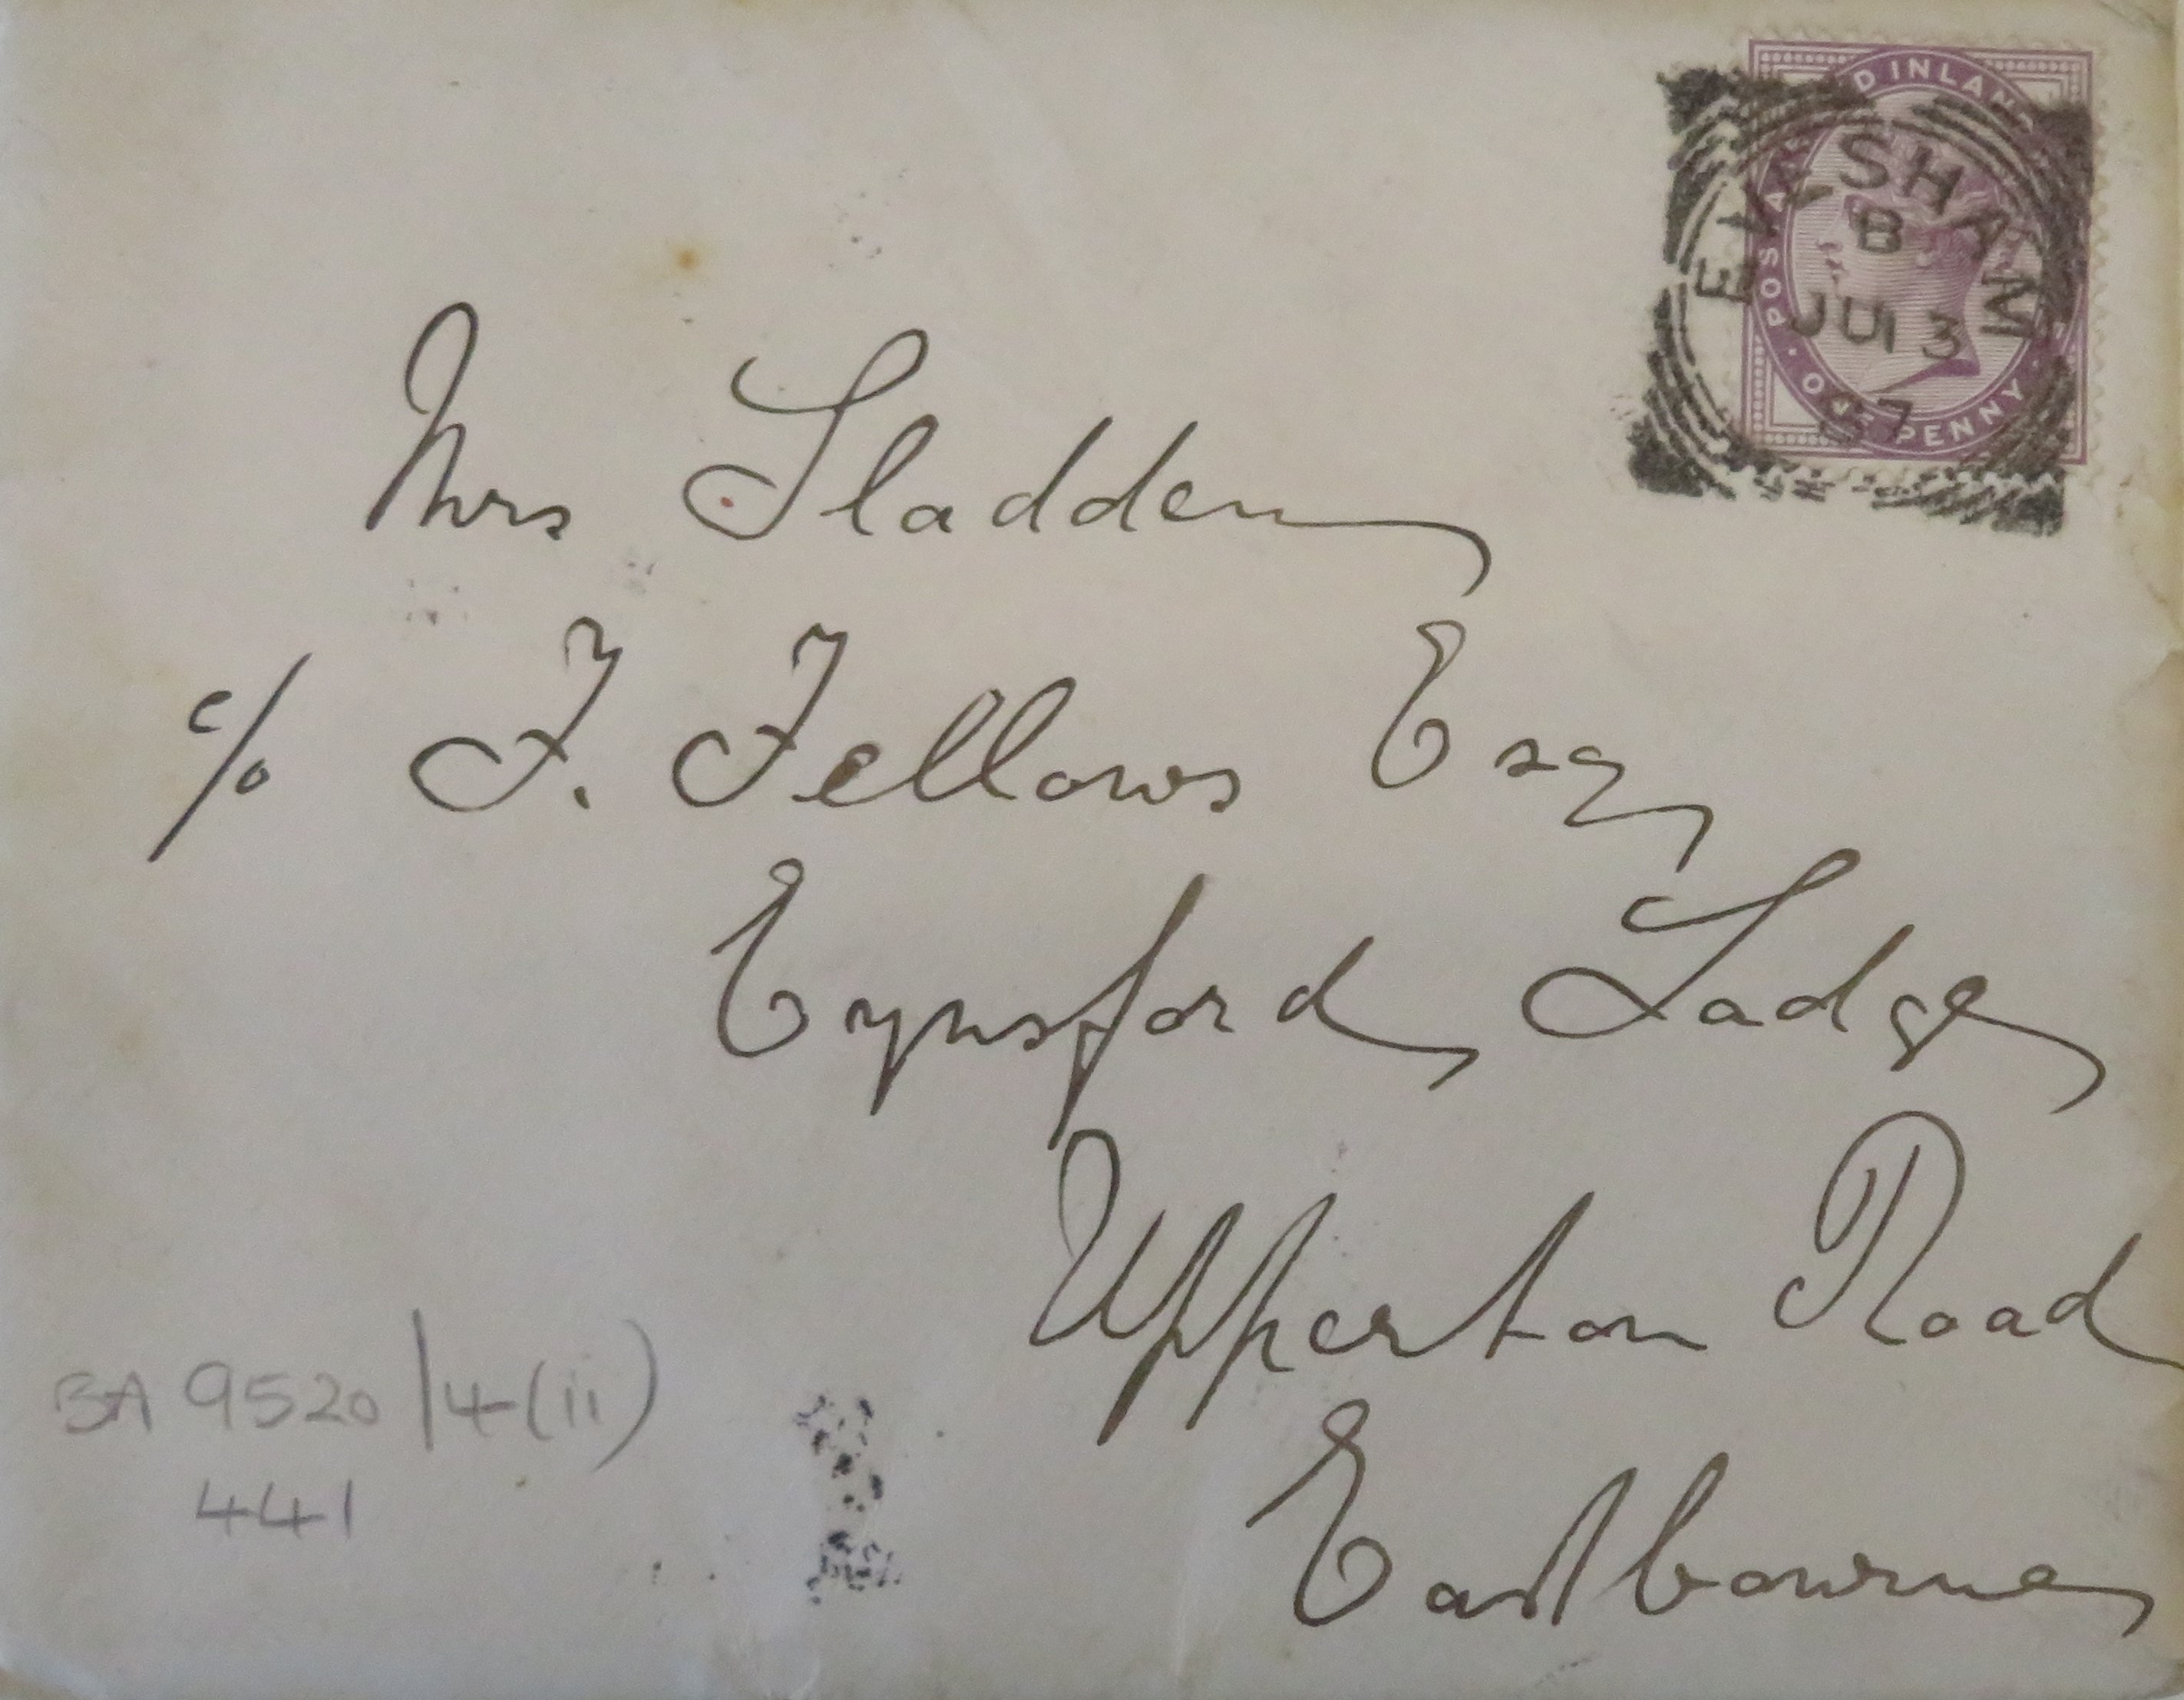 POSTAGE AND INLAND
EVESHAM
B
JU 13
97
ONE PENNY
Mrs Sladden
c/o F. Fellows Esq
Eynsford Lodge
Upperton Road
Eastbourne
BA 9520/4(ii)
441